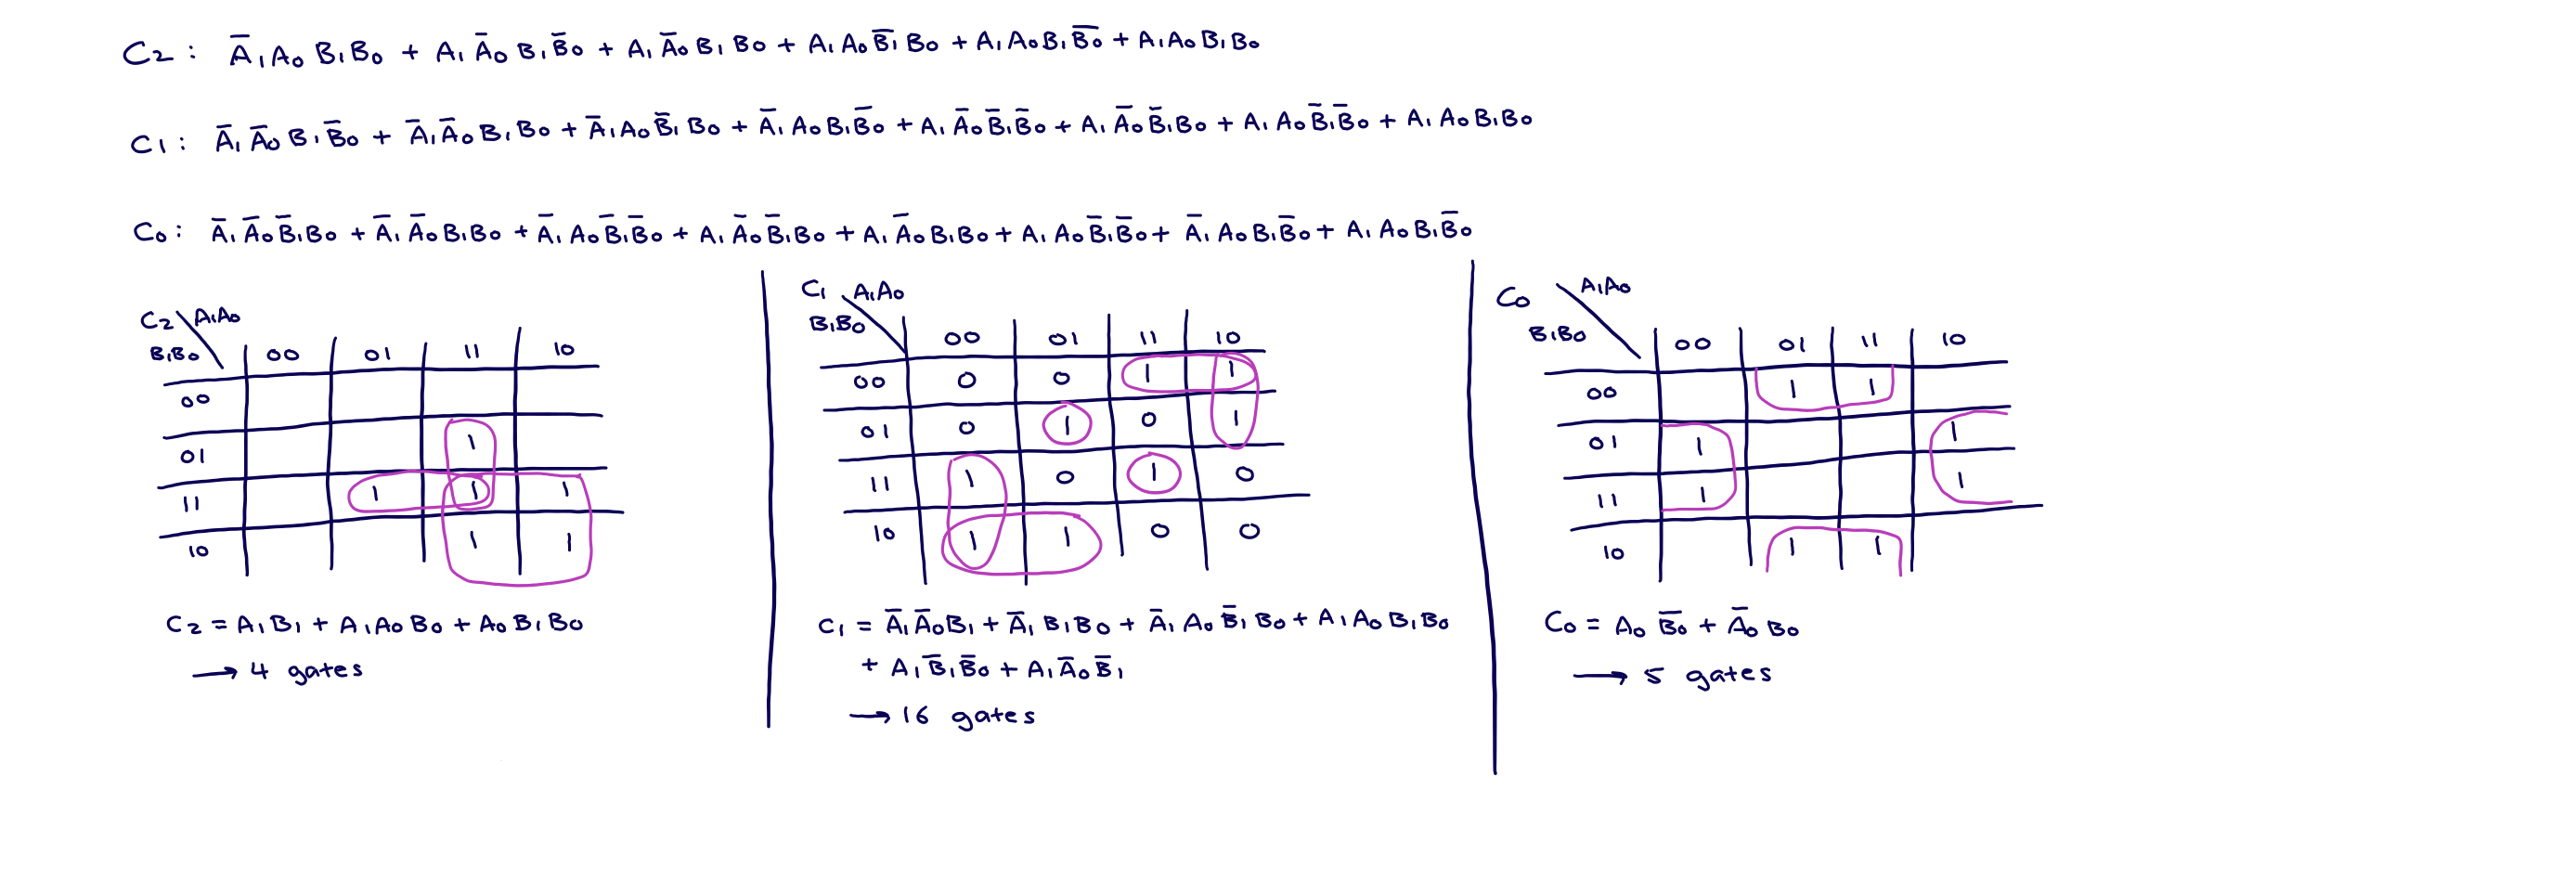 C₂ : A̅₁A₀B₁B₀ + A₁A̅₀B₁B̅₀ + A₁A̅₀B₁B₀ + A₁A₀B̅₁B₀ + A₁A₀B₁B̅₀ + A₁A₀B₁B₀
C₁ : A̅₁A̅₀B₁B̅₀ + A̅₁A̅₀B₁B₀ + A̅₁A₀B̅₁B₀ + A̅₁A₀B₁B̅₀ + A₁A̅₀B̅₁B̅₀ + A₁A̅₀B̅₁B₀ + A₁A₀B̅₁B̅₀ + A₁A₀B₁B₀
C₀ : A̅₁A̅₀B̅₁B₀ + A̅₁A̅₀B₁B₀ + A̅₁A₀B̅₁B̅₀ + A₁A̅₀B̅₁B₀ + A₁A̅₀B₁B₀ + A₁A₀B̅₁B̅₀ + A̅₁A₀B₁B̅₀ + A₁A₀B₁B̅₀
C₂ A₁A₀
B₁B₀ 00 01 11 10
00
01 1
11 1 1 1
10 1 1
C₂ = A₁B₁ + A₁A₀B₀ + A₀B₁B₀
→ 4 gates
C₁ A₁A₀
B₁B₀ 00 01 11 10
00 0 0 1 1
01 0 1 0 1
11 1 0 1 0
10 1 1 0 0
C₁ = A̅₁A̅₀B₁ + A̅₁B₁B₀ + A̅₁A₀B̅₁B₀ + A₁A₀B₁B₀
+ A₁B̅₁B̅₀ + A₁A̅₀B̅₁
→ 16 gates
C₀ A₁A₀
B₁B₀ 00 01 11 10
00 1 1
01 1 1
11 1 1
10 1 1
C₀ = A₀B̅₀ + A̅₀B₀
→ 5 gates